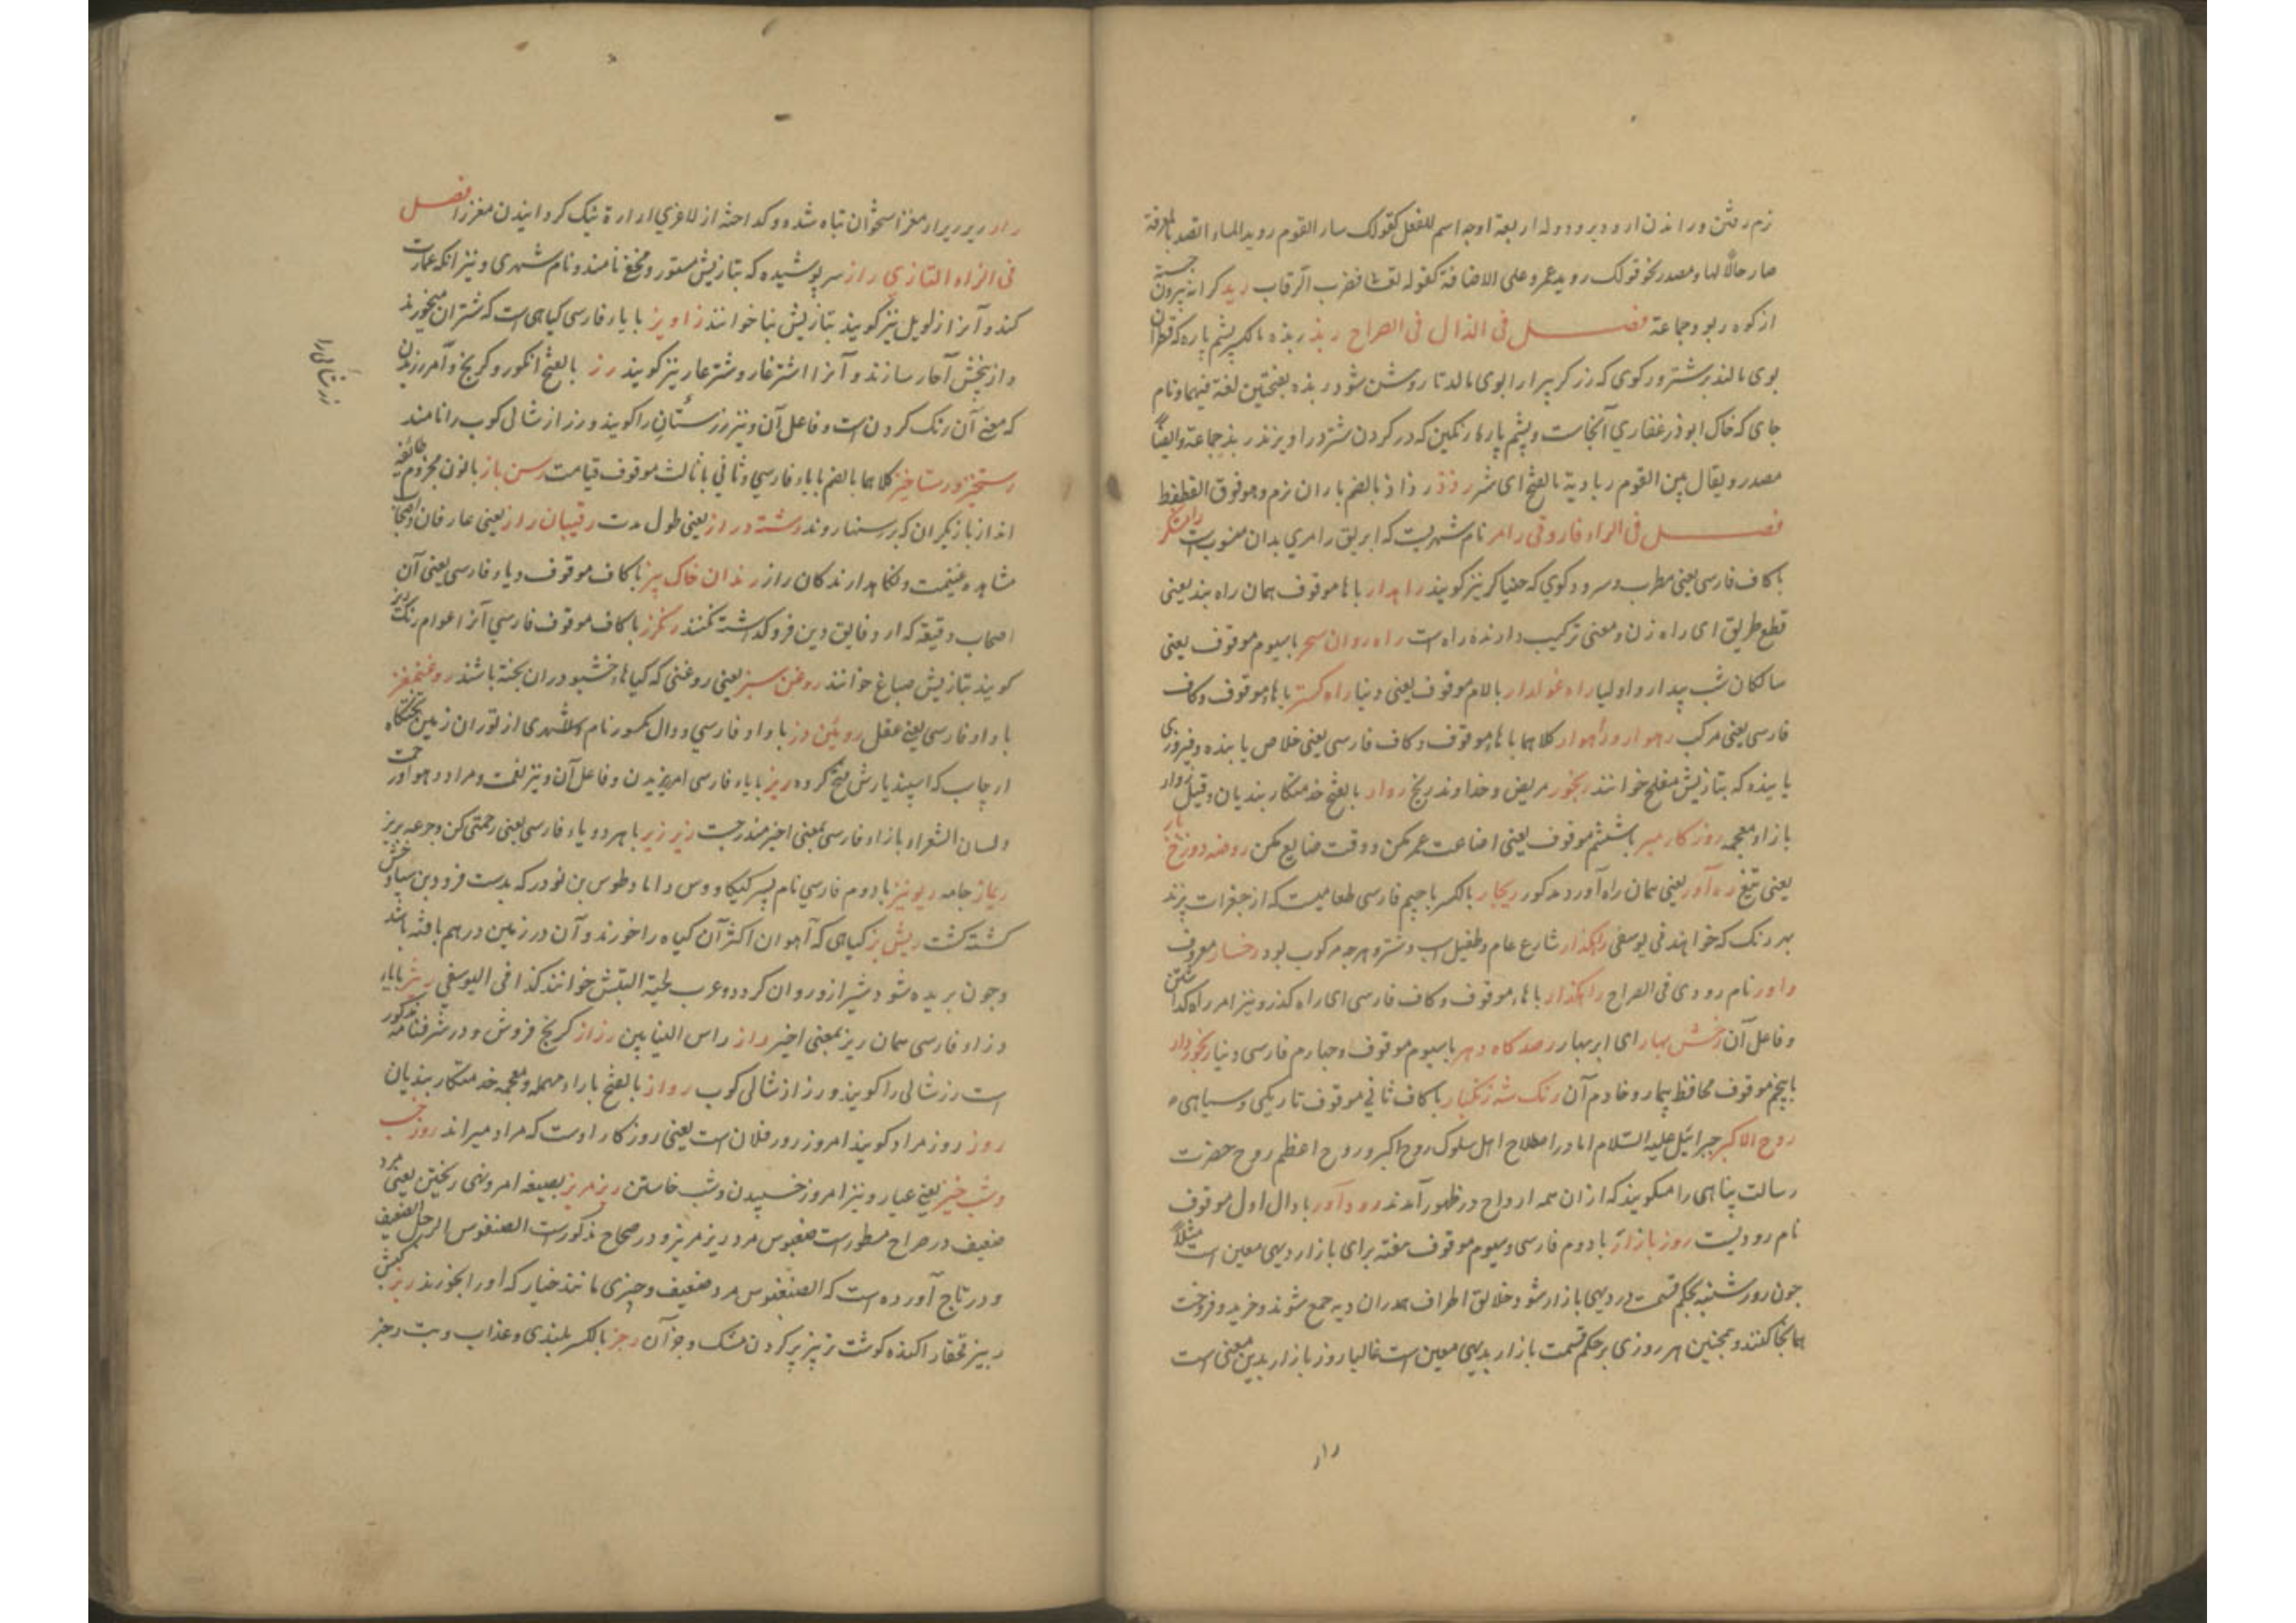 نرم رفتن و راندن ارود یرود وله اربعة اوجه اسم للفعل کقولک سار القوم رویدا
صار حالاً لها و مصدر نحو قولک روید عمرو علی الاضافة کقوله تعالی فضرب الرقاب رید کرانه بیرون جسته
از کوه ربود جماعة فصل فی الذال فی الصراح ربذ ربذه بالکسر پشم پاره که قطران
بوی مالند بر شتر و رکوی که زرگر پیرار ابوی مالد تا روشن شود ربذه بفتحتین لغة فیهما و نام
جای که خاک ابوذر غفاری آنجاست و پشم پارهٔ رنگین که در کردن شتر در اویزند ربذ جماعة و ایضاً
مصدر و یقال بین القوم رباذیة بالفتح ای شر رذذ رذاذ بالضم باران نرم و هو فوق القطقط
فصل فی الراء فاروقی رامر نام شهریست که ابریق رامری بدان منسوبست رامشکر
با کاف فارسی یعنی مطرب و سرود کوی که خنیاکر نیز کویند راهدار با ها موقوف همان راه بند یعنی
قطع طریق ای راه زن و معنی ترکیب دارندهٔ راه است راه روان سحر با سیوم موقوف یعنی
سالکان شب بیدار و اولیا راه غولدار بالام موقوف یعنی دنیا راه کستر با هاء موقوف و کاف
فارسی یعنی مرکب رهوار و راهوار کلاهما با هاء موقوف و کاف فارسی یعنی خلاص یابنده و فیروزی
یابنده که بتازیش مفلح خوانند رنجور مریض و خداوند رنج رواد بالفتح خدمتکار بندیان و قیل زوار
با زاء معجمه روزکار مبر با ششم موقوف یعنی اضاعت عمر مکن و وقت ضایع مکن روضه دوزخ بار
یعنی تیغ ره آور یعنی همان راه آورد مذکور ریچار بالکسر با جیم فارسی طعامیست که از جغرات پزند
بهر رنک که خواهند فی یوسفی راهکذار شارع عام و طفیل اسب و شتر و هرچه مرکوب بود رخسار معروف
راور نام رودی فی الصراح راهکذار با هاء موقوف و کاف فارسی ای راه کذر و نیز امر راه کذاشتن
و فاعل آن رخش بهار ای ابر بهار رصد کاه دهر با سیوم موقوف و چهارم فارسی دنیا رنجور دار
با پنجم موقوف محافظ بیمار و خادم آن رنک شه زنکبار با کاف ثانی موقوف تاریکی و سیاهی
روح الاکبر جبرائیل علیه السلام اما در اصطلاح اهل سلوک روح اکبر و روح اعظم روح حضرت
رسالت پناهی را میکویند که ازان همه ارواح در ظهور آمدند رود آور با دال اول موقوف
نام رودیست روز بازار با دوم فارسی و سیوم موقوف هفته برای بازار دیهی معین است مثلاً
چون روز شنبه بحکم قسمت در دیهی بازار شود خلایق اطراف بدان دیه جمع شوند و خرید و فروخت
همانجا کنند و همچنین هر روزی بر حکم قسمت بازار بدیهی معین است غالبا روز بازار بدین معنی است
رار
رار ریر ریرار مغز استخوان تباه شده و کداخته از لاغری ارارة تنک کردانیدن مغز را فصل
فی الزاء التازی راز سر پوشیده که بتازیش مستور و نامند و نام شهری و نیز انکه عمارت
کند و آنرا نیز کویند بتازیش بنا خوانند زاویز با یاء فارسی کیاهی است که شتران میخورند
و از بیخش آچار سازند و آنرا اشترغار و شترغار نیز کویند رز بالفتح انکور و کرنج و امر رزیدن
که معنی آن رنک کردن است و فاعل آن و نیز رزستان را کویند و رزاز شالی کوب را نامند
رزشالی را
رستخیز و رستاخیز کلاهما بالضم با یاء فارسی و ثانی با ثالث موقوف قیامت رسن باز با نون مجزوم طائفه
اند از بازیکران که بر رسنها روند رشته دراز یعنی طول مدت رقیبان راز یعنی عارفان و اصحاب
مشاهده و نکاهدارندکان راز رندان خاک بیز با کاف موقوف و یاء فارسی یعنی آن
اصحاب دقیقه که از دقایق دین فرو کذاشت نکنند رنکرز با کاف موقوف فارسی آنرا عوام رنکریز
کویند بتازیش صباغ خوانند روغن سبز یعنی روغنی که کیاهاء خشبو دران پخته باشند روغنمغز
با واو فارسی یعنی عقل رویین دز با واو فارسی و دال مکسور نام شهری از توران زمین تختکاه
ارجاسب که اسپندیارش فتح کرده ریز با یاء فارسی امر ریزیدن و فاعل آن و نیز نعمت و مراد و هوا و در
لسان الشعراء با زاء فارسی بمعنی اخیر مندرجست ریز ریز با هر دو یاء فارسی یعنی رحمتی کن و جرعه بریز
ریماز جامه ریونیز با دوم فارسی نام پسر کیکاووس داماد طوس بن نودر که بدست فرود بن سیاوخش
کشته کشت ریش بز کیاهی که آهوان اکثر آن کیاه را خورند و آن در زمین در هم بافته باشد
و چون بریده شود شیر ازو روان کردد و عرب لحیة التیس خوانند کذا فی الیوسفی ریژ با یاء
و زاء فارسی همان ریز بمعنی اخیر راز راس البنایین رزاز کرنج فروش و در شرفنامه مذکور
است رزشالی را کویند و رزاز شالی کوب رواز بالفتح با راء مهمله و معجمه خدمتکار بندیان
روز روز مراد کویند امروز روز فلان است یعنی روزکار اوست که مراد میراند روز خسب
و شب خیز یعنی عیار و نیز امر روز خسپیدن و شب خاستن ریز مریز بصیغه امر و نهی ریختن یعنی مرد
ضعیف در صراح مسطورست ضغبوس مرد ریز مریز و در صحاح مذکورست الضغبوس الرجل الضعیف
و در تاج آورده است که الضغبوس مرد ضعیف و چیزی مانند خیار که او را بخورند ربز کبش
ربیز آکنده کوشت پر کردن مشک و جز آن رجز بالکسر پلیدی و عذاب و بت رجز